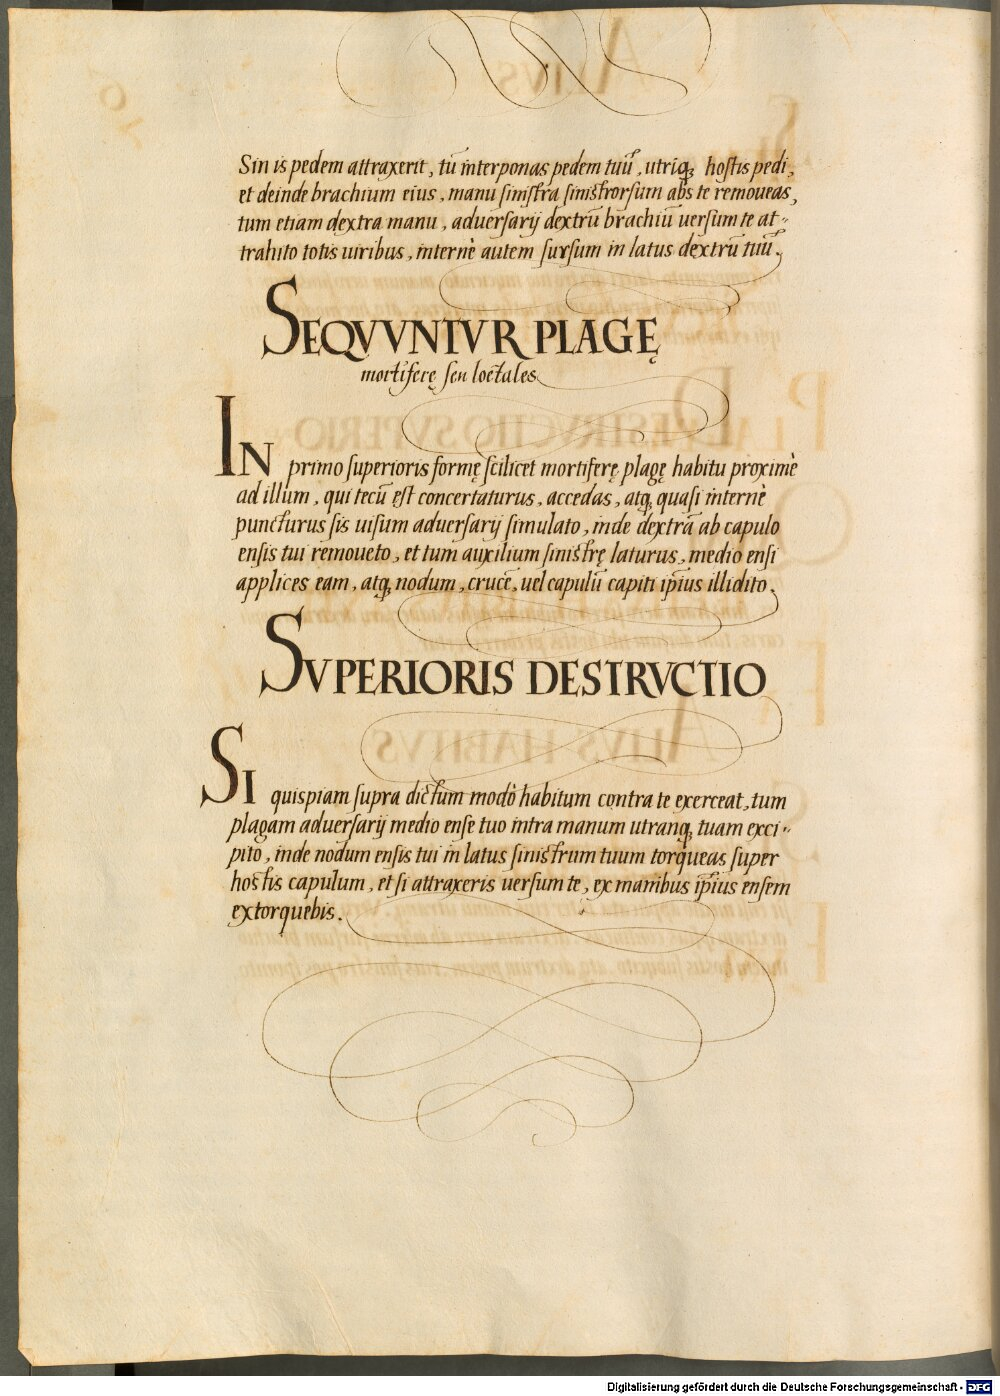 Sin is pedem attraxerit, tū interponas pedem tuū, utriq; hostis pedi,
et deinde brachium eius, manu sinistra sinistrorsum abs te remoueas,
tum etiam dextra manu, aduersarij dextrū brachiū uersum te at-
trahito totis uiribus, internè autem sursum in latus dextrū tuū.
SEQVVNTVR PLAGĘ
mortiferę seu loetales
IN primo superioris formę scilicet mortiferę plagę habitu proximè
ad illum, qui tecū est concertaturus, accedas, atq; quasi internè
puncturus sis uisum aduersarij simulato, inde dextrā ab capulo
ensis tui remoueto, et tum auxilium sinistrę laturus, medio ensi
applices eam, atq; nodum, crucē, uel capulū capiti ip̄ius illidito.
SVPERIORIS DESTRVCTIO
SI quispiam supra dictum modò habitum contra te exerceat, tum
plagam aduersarij medio ense tuo intra manum utranq; tuam exci-
pito, inde nodum ensis tui in latus sinistrum tuum torqueas super
hostis capulum, et si attraxeris uersum te, ex manibus ip̄ius ensem
extorquebis.
Digitalisierung gefördert durch die Deutsche Forschungsgemeinschaft - DFG